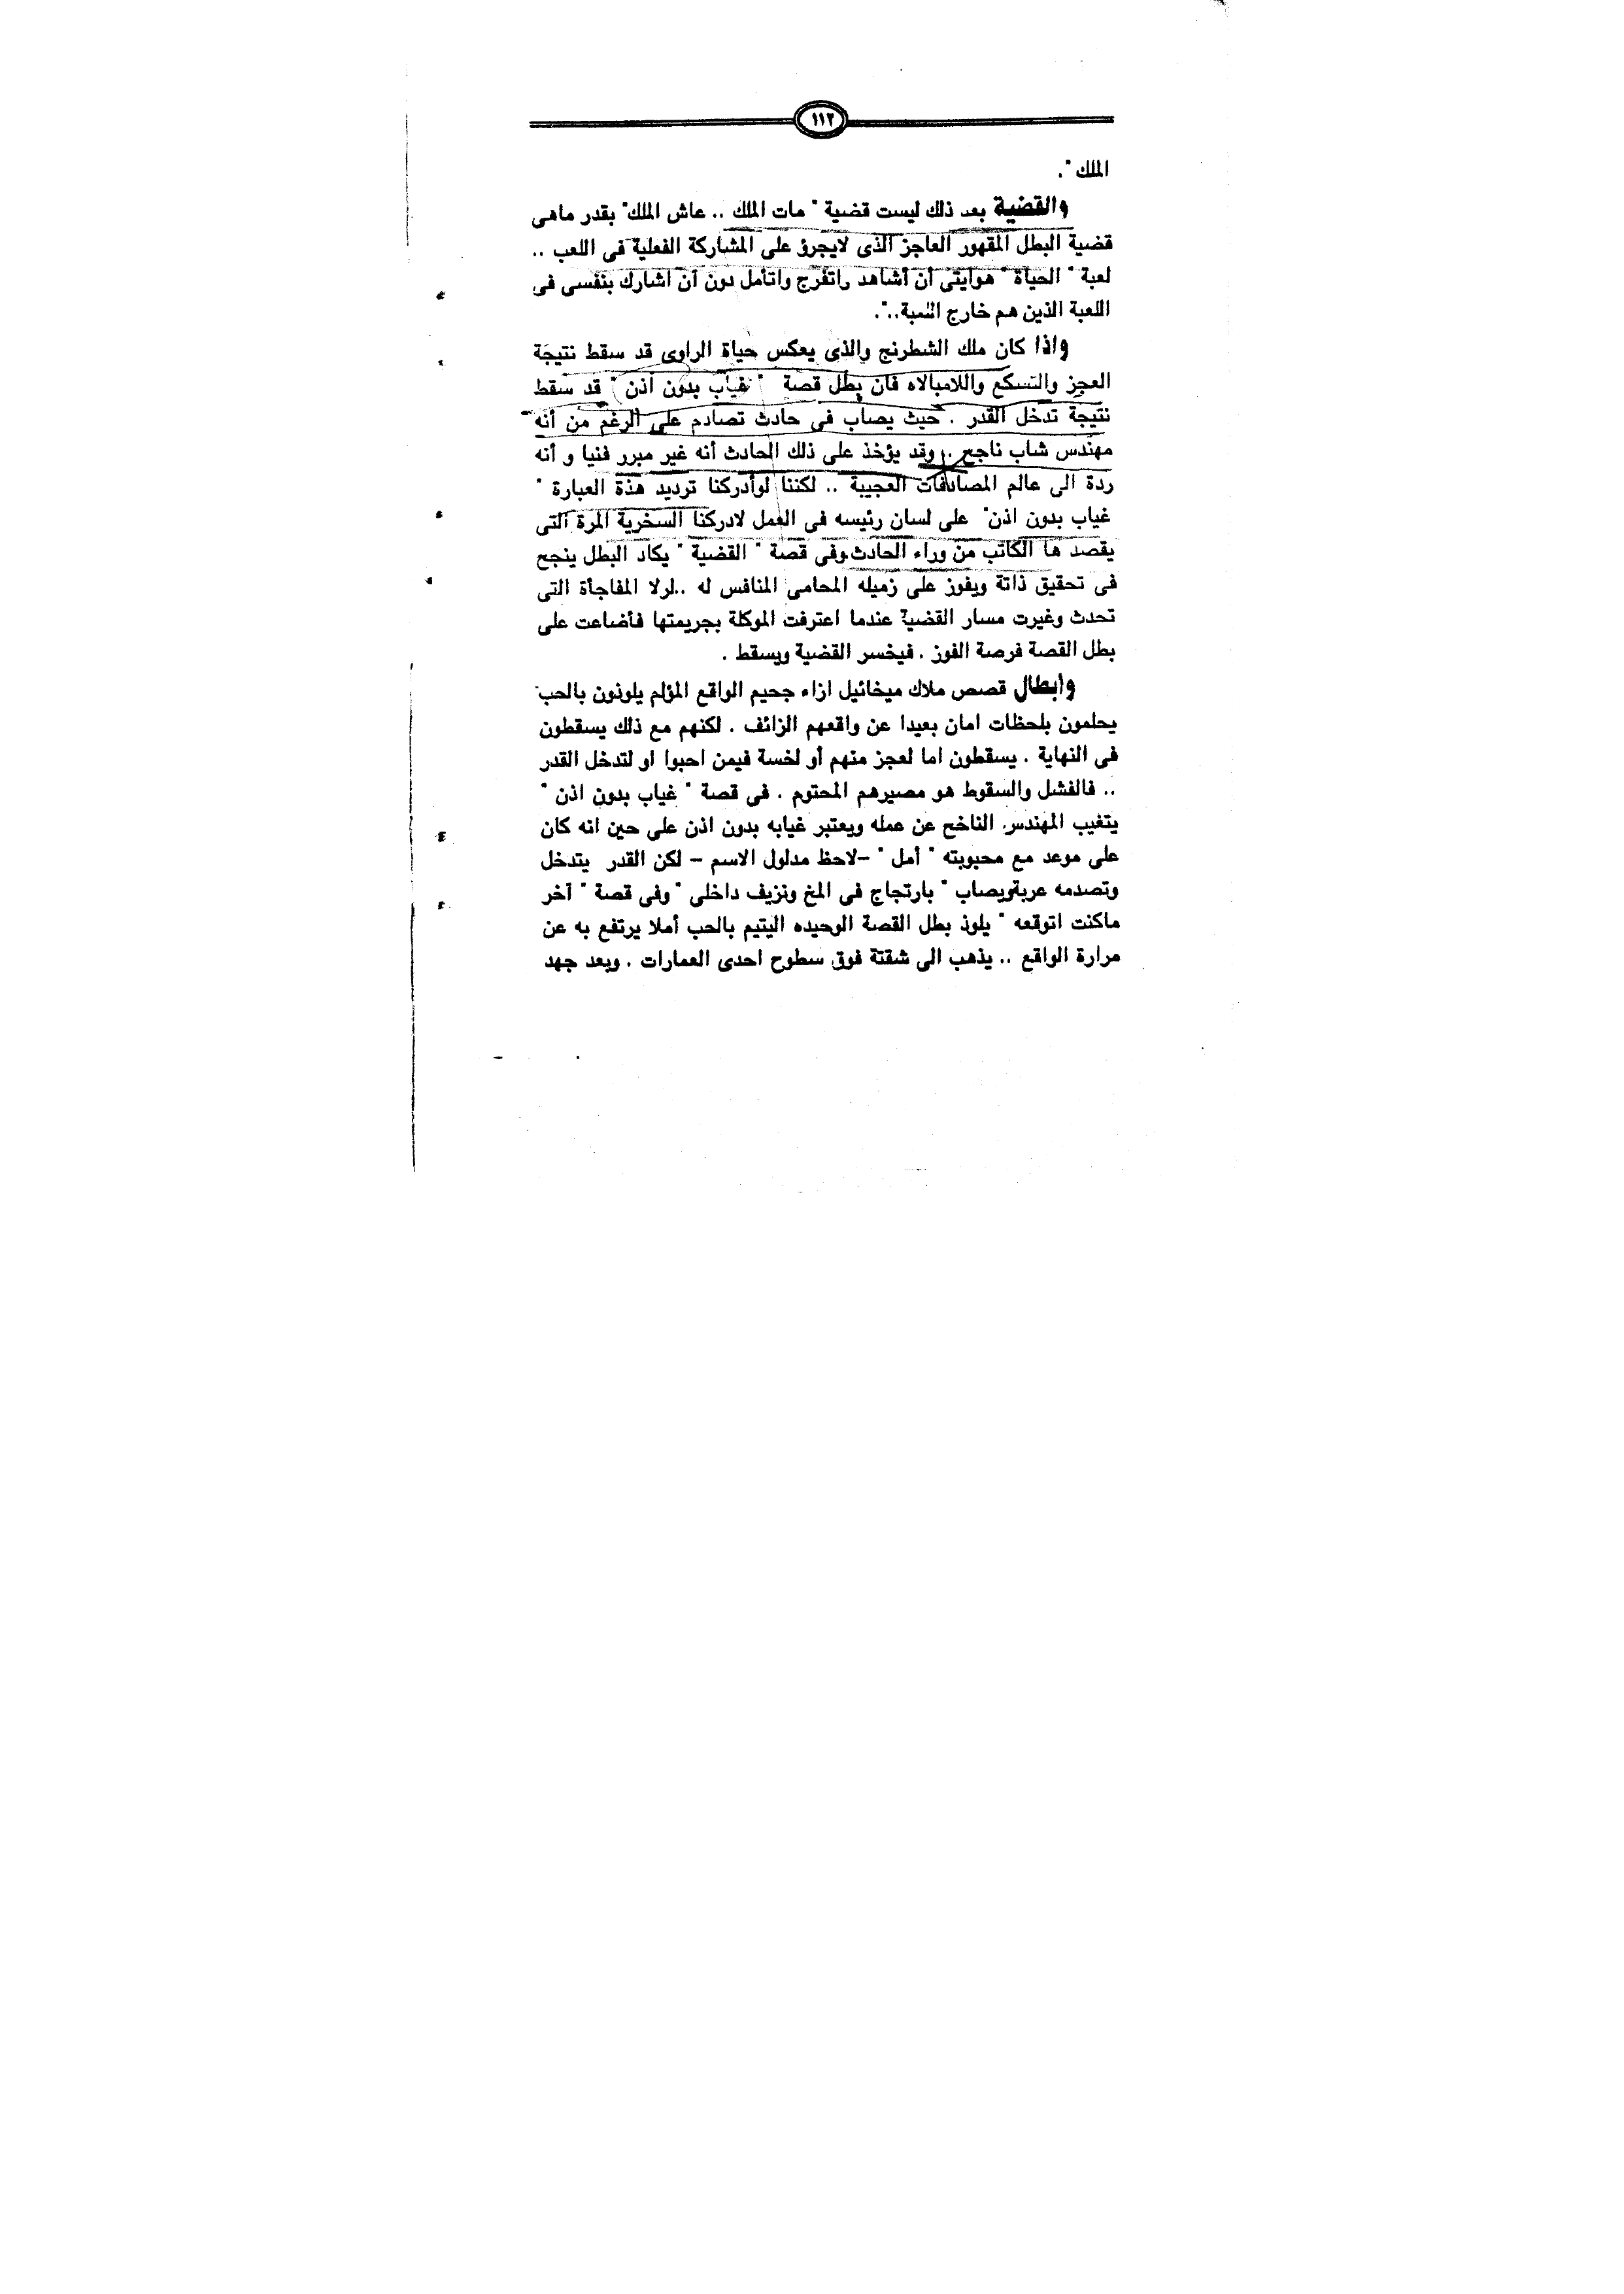 ١١٢
الملك ".
والقضية بعد ذلك ليست قضية " مات الملك .. عاش الملك" بقدر ماهى
قضية البطل المقهور العاجز الذى لايجرؤ على المشاركة الفعلية فى اللعب ..
لعبة " الحياة " هوايتى أن أشاهد واتفرج واتأمل دون أن اشارك بنفسى فى
اللعبة الذين هم خارج اللعبة..".
واذا كان ملك الشطرنج والذى يعكس حياة الراوى قد سقط نتيجة
العجز والتسكع واللامبالاه فان بطل قصة " غياب بدون أذن " قد سقط
نتيجة تدخل القدر . حيث يصاب فى حادث تصادم على الرغم من أنه
مهندس شاب ناجح .. وقد يؤخذ على ذلك الحادث أنه غير مبرر فنيا و أنه
ردة الى عالم المصادفات العجيبة .. لكننا لوأدركنا ترديد هذة العبارة "
غياب بدون اذن" على لسان رئيسه فى العمل لادركنا السخرية المرة التى
يقصد ها الكاتب من وراء الحادث.وفى قصة " القضية " يكاد البطل ينجح
فى تحقيق ذاتة ويفوز على زميله المحامى المنافس له ..لولا المفاجأة التى
تحدث وغيرت مسار القضية عندما اعترفت الموكلة بجريمتها فأضاعت على
بطل القصة فرصة الفوز . فيخسر القضية ويسقط .
وابطال قصص ملاك ميخائيل ازاء جحيم الواقع المؤلم يلوذون بالحب
يحلمون بلحظات امان بعيدا عن واقعهم الزائف . لكنهم مع ذلك يسقطون
فى النهاية . يسقطون اما لعجز منهم أو لخسة فيمن احبوا او لتدخل القدر
.. فالفشل والسقوط هو مصيرهم المحتوم . فى قصة " غياب بدون اذن "
يتغيب المهندس الناخح عن عمله ويعتبر غيابه بدون اذن على حين انه كان
على موعد مع محبوبته " أمل " -لاحظ مدلول الاسم - لكن القدر يتدخل
وتصدمه عربةويصاب " بارتجاج فى المخ ونزيف داخلى "وفى قصة " آخر
ماكنت اتوقعه " يلوذ بطل القصة الوحيده اليتيم بالحب أملا يرتفع به عن
مرارة الواقع .. يذهب الى شقتة فوق سطوح احدى العمارات . وبعد جهد